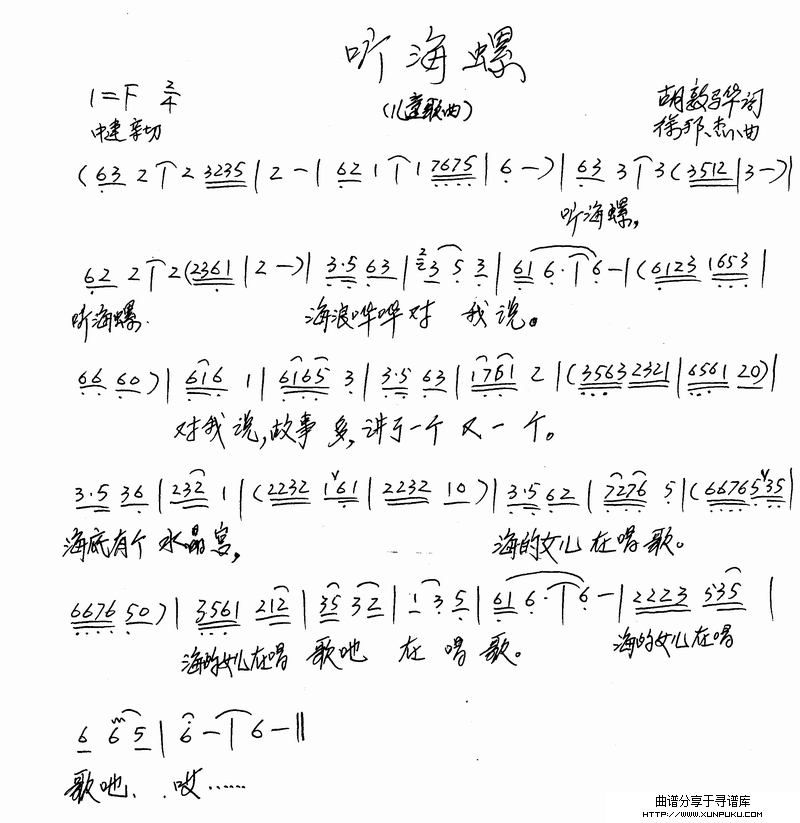 听海螺
1=F 2/4
(儿童歌曲)
胡敦骅词
中速亲切
徐邦杰曲
(63 2 | 2 3235 | 2 - | 62 1 | 1 7675 | 6 -) | 63 3 | 3 (3512 | 3 -) |
听海螺,
62 2 | 2 (2361 | 2 -) | 3·5 63 | 3 5 3 | 61 6· | 6 - | (6123 1653 |
听海螺. 海浪哗哗对 我 说。
66 60) | 616 1 | 6165 3 | 3·5 63 | 1761 2 | (3563 2321 | 6561 20) |
对我 说,故事 多,讲了一个 又 一 个。
3·5 36 | 232 1 | (2232 161 | 2232 10) | 3·5 62 | 7276 5 | (66765 535 |
海底有个 水晶宫, 海的女儿 在唱 歌。
6676 50) | 3561 212 | 35 32 | 1 3 5 | 61 6· | 6 - | 2223 535 |
海的女儿在唱 歌吔 在 唱 歌。 海的女儿在唱
6 6 5 | 6 - | 6 - ‖
歌吔、 哎……
曲谱分享于寻谱库
HTTP://WWW.XUNPUKU.COM